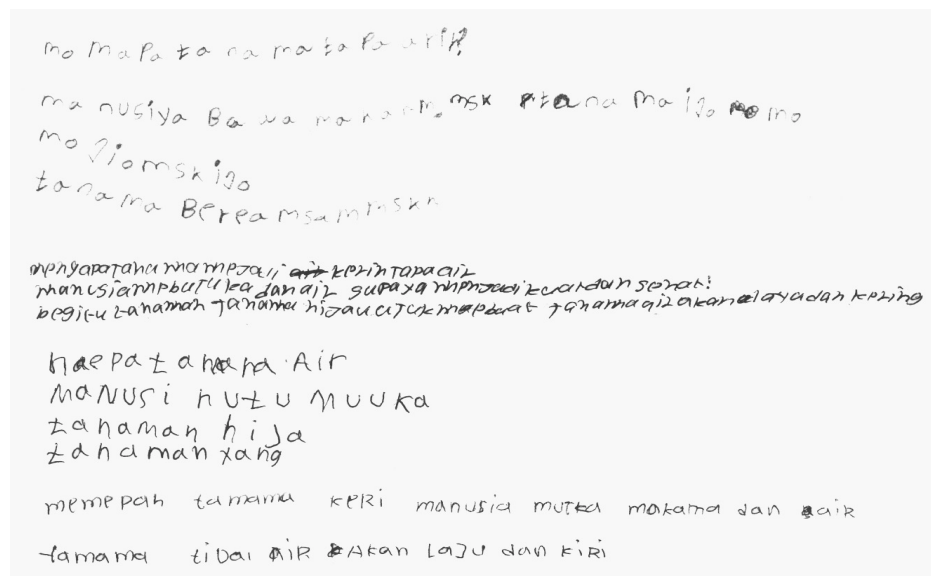 mo mapa ta na ma ta pa arir?
ma nusiya Ba wa mana msk tana ma ijo mo
mo jiomskijo
tanama Berea msammskn
mengapatanamamenjadi kerintapaair
manusiamebutukadanair supayamenjadikuatdansehat!
begitutanaman tanama hijau utuk tanamaairakan layadan kering
naepatanana Air
MaNUSi nutu MUUKa
tanaman hija
tanaman yang
memepah tamama keRi manusia mutka makama dan air
tamama tiDai AiR AKan LaJu dan KiRi